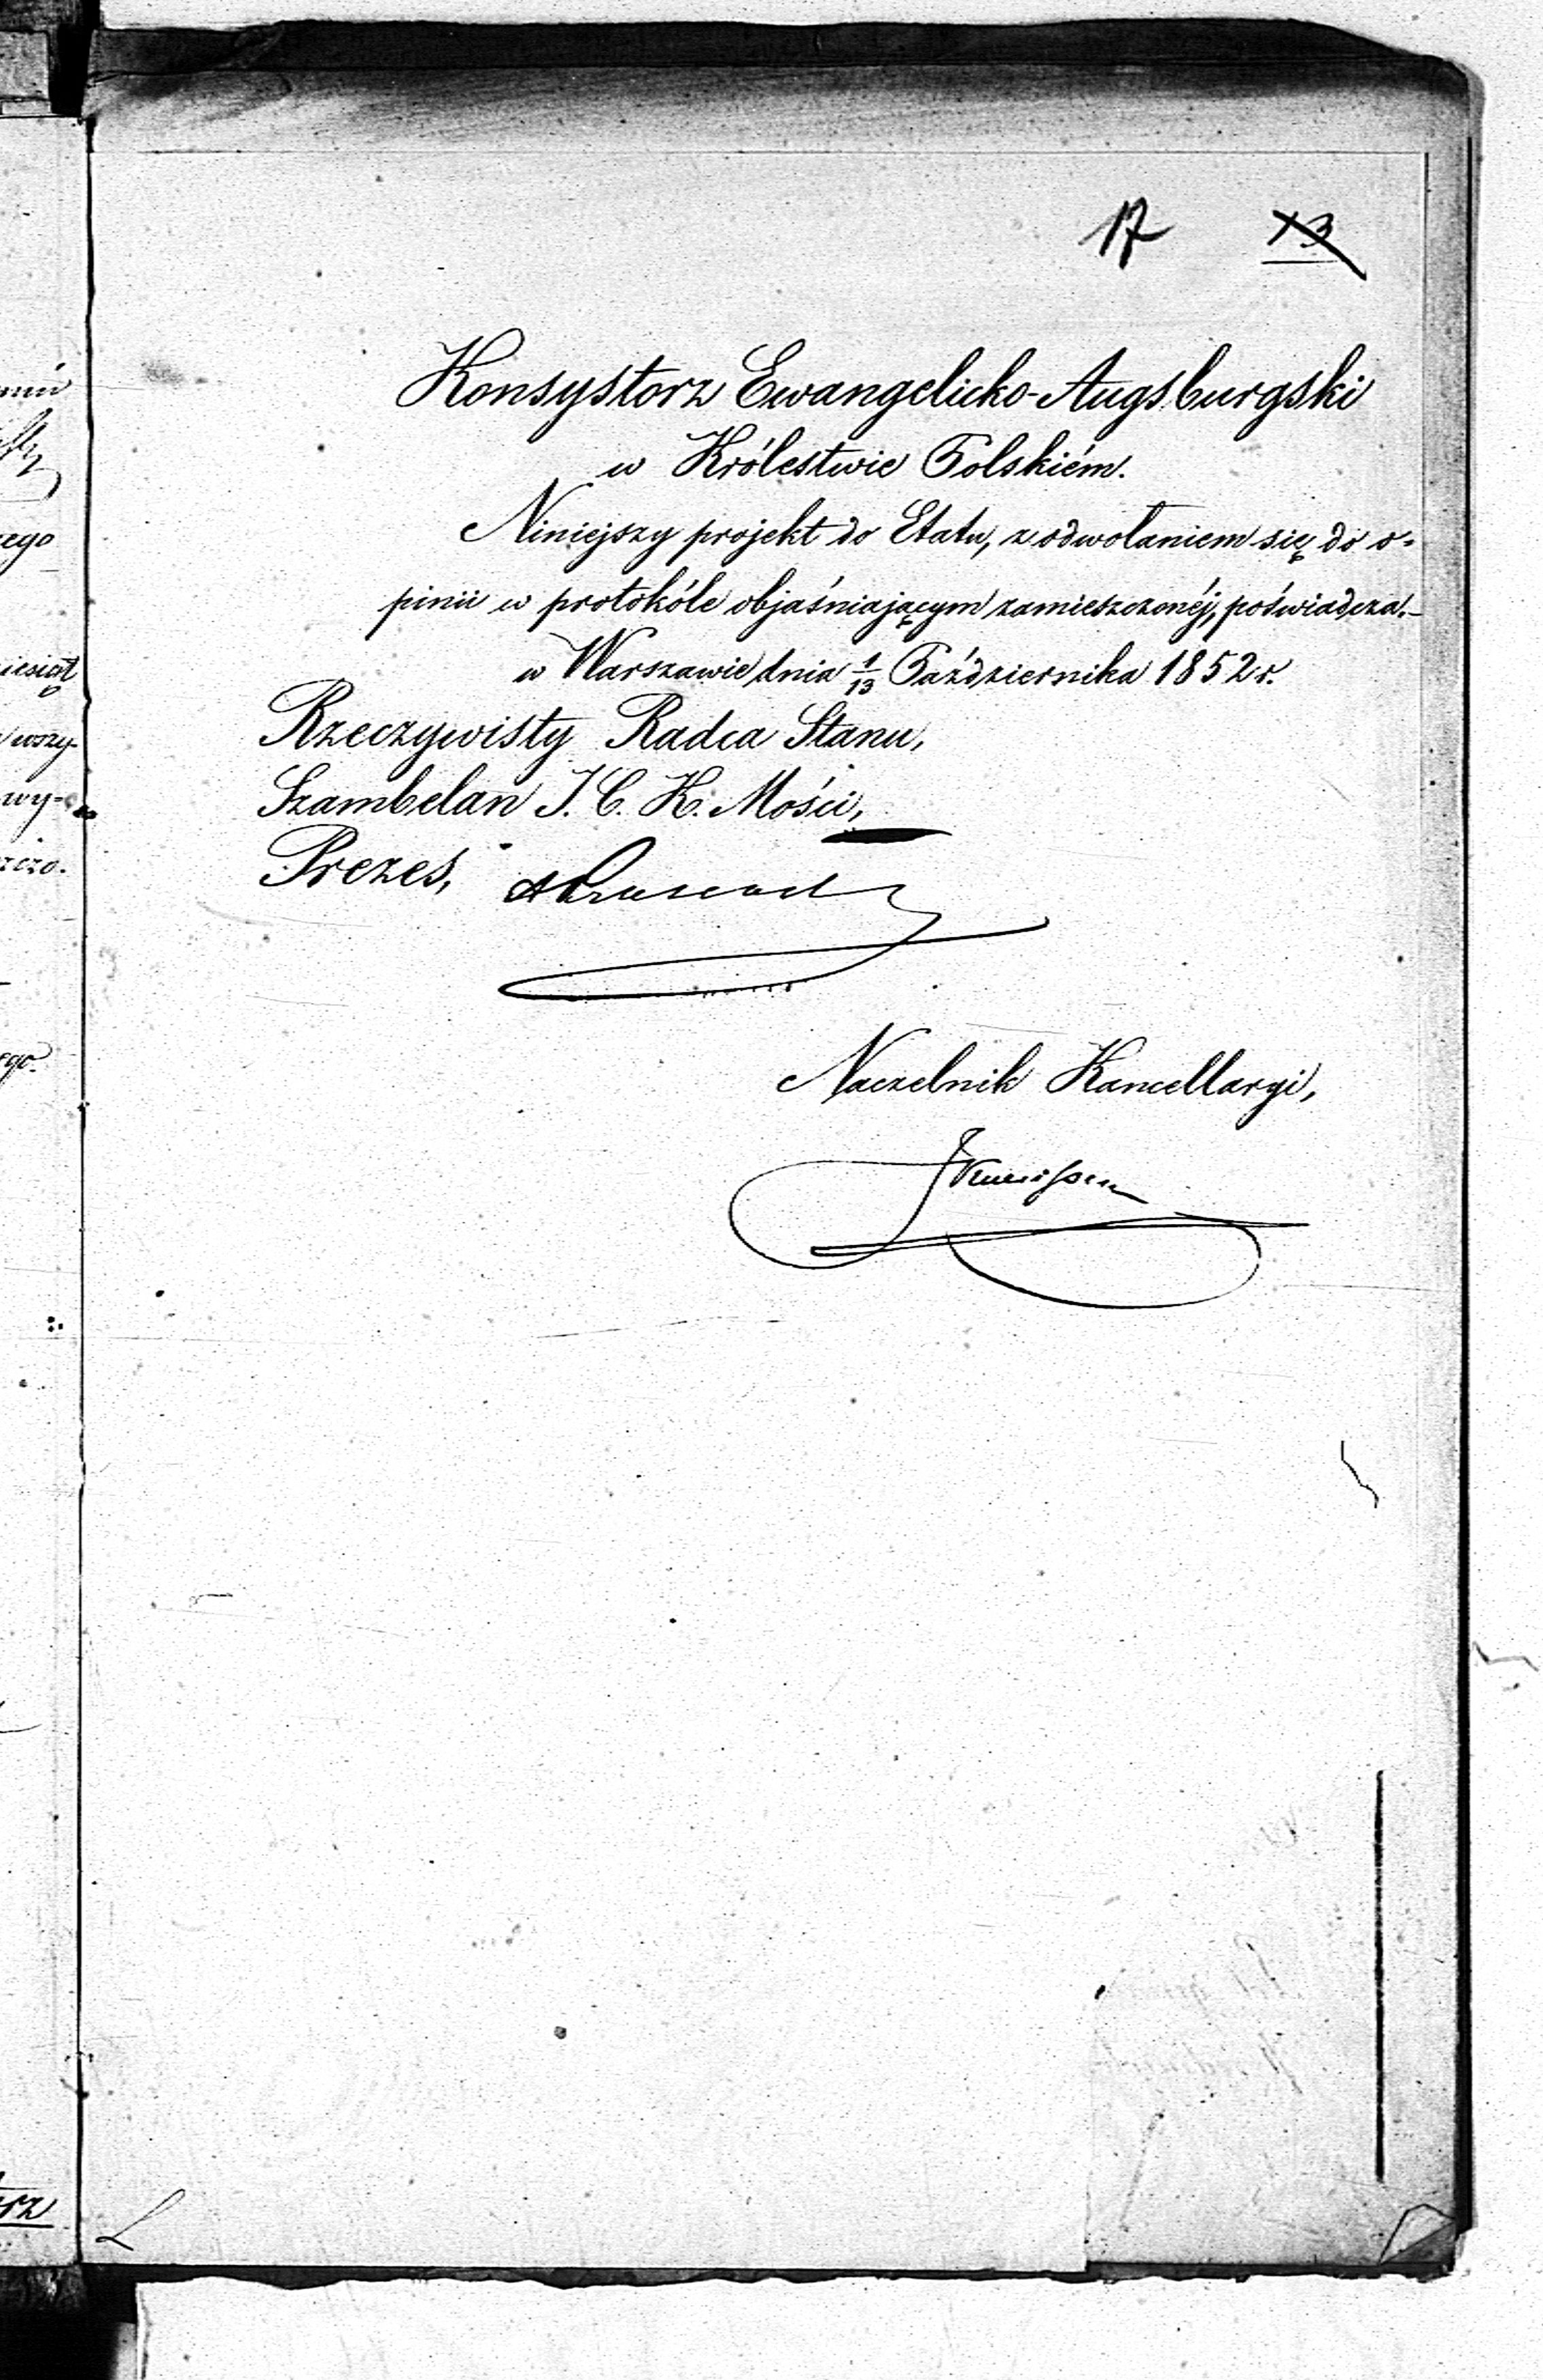 17 13
Konsystorz Ewangelicko-Augsburgski
w Królestwie Polskiém.
Niniejszy projekt do Etatu, z odwołaniem się do o-
pinii w protokóle objaśniającym zamieszczonéj, poświadcza.-
w Warszawie dnia 1/13 Października 1852 r.
Rzeczywisty Radca Stanu,
Szambelan J. C. K. Mości,
Prezes,
Naczelnik Kancellaryi,